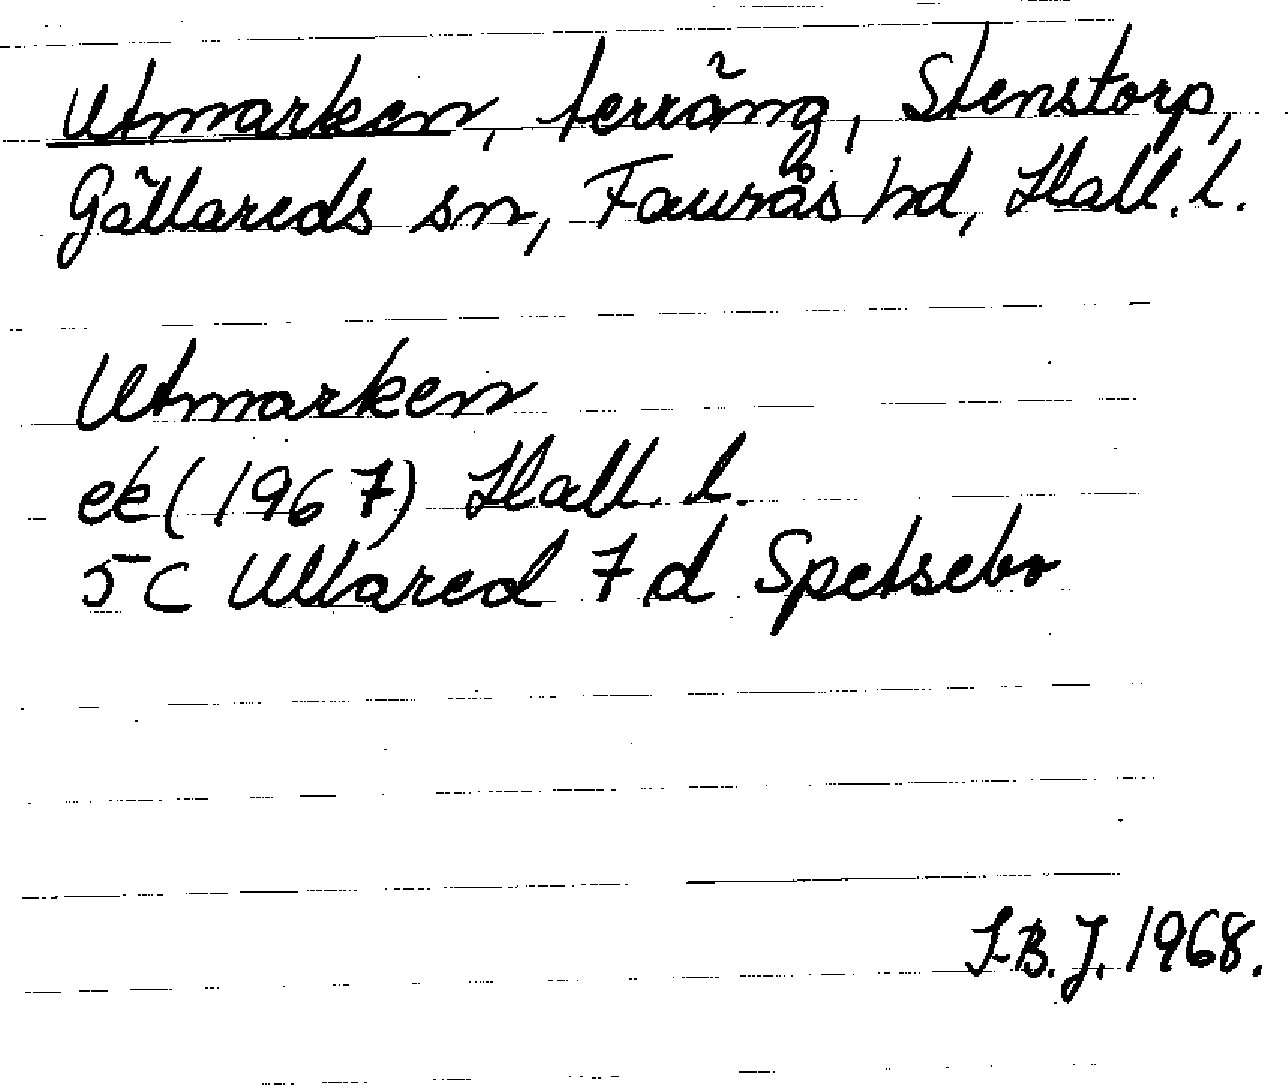 Utmarken, terräng, Stenstorp,
Gällareds sn, Faurås hd, Hall. l.
Utmarken
ek (1967) Hall. l.
5C Ullared 7d Spetsebo
I-B. J. 1968.